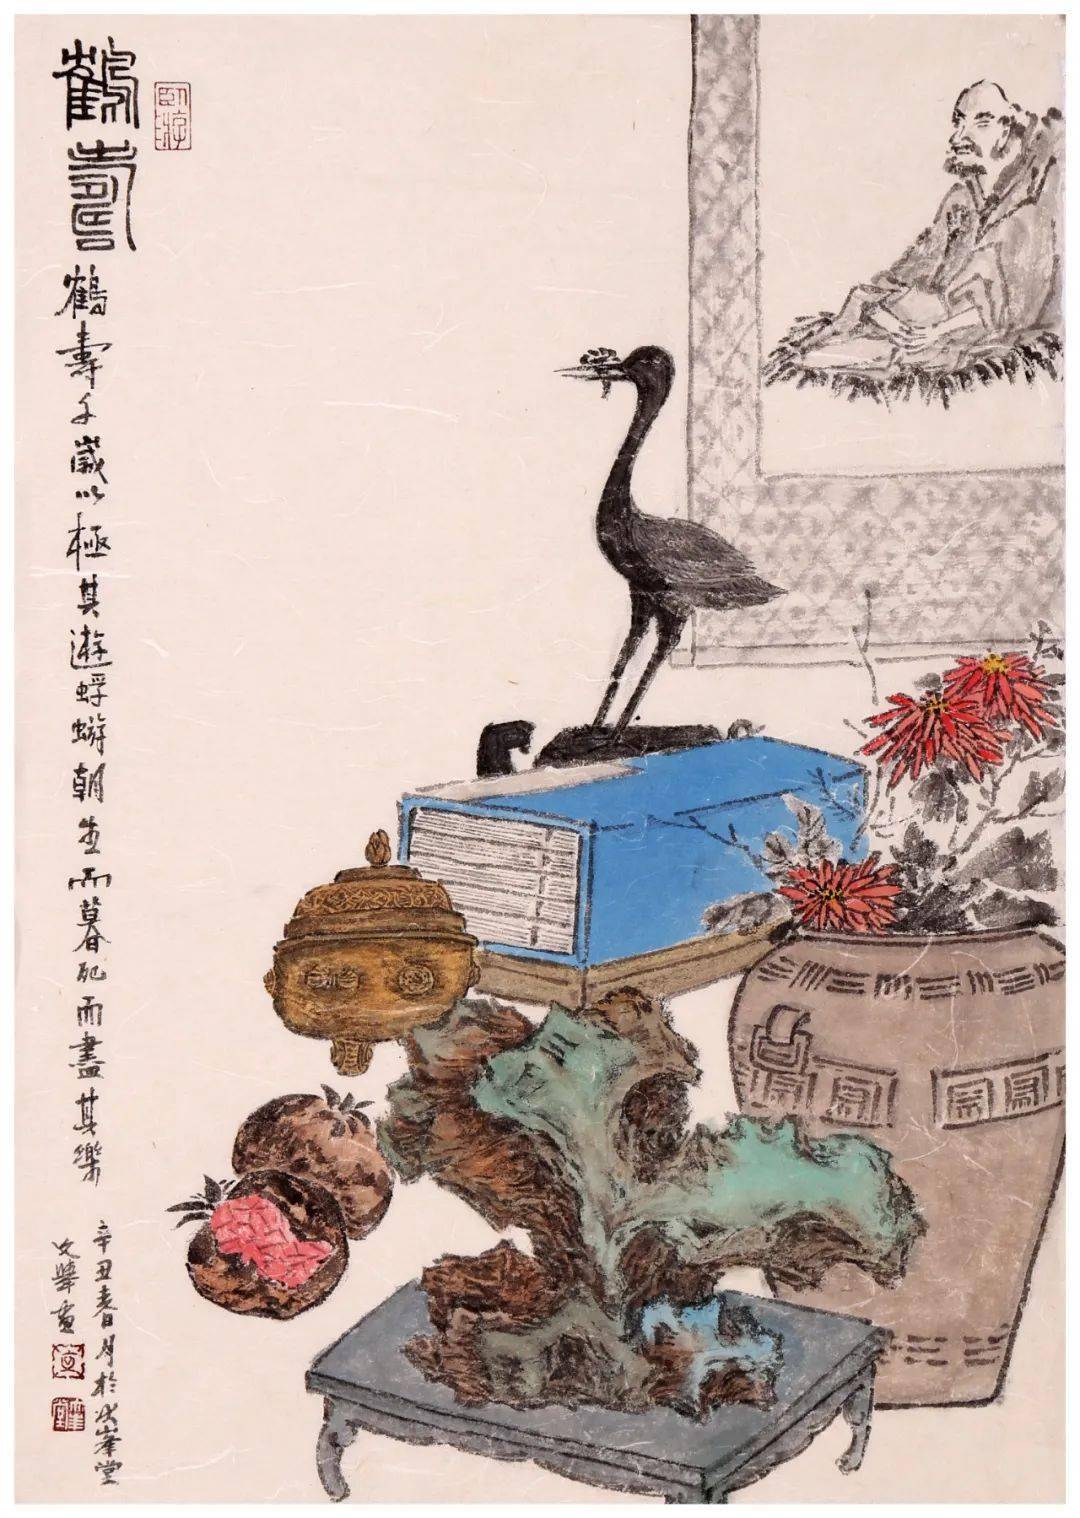 鶴壽
臥游
鶴壽千歲以極其遊蜉蝣朝生而暮死而盡其樂
辛丑春月於峯堂
文畫